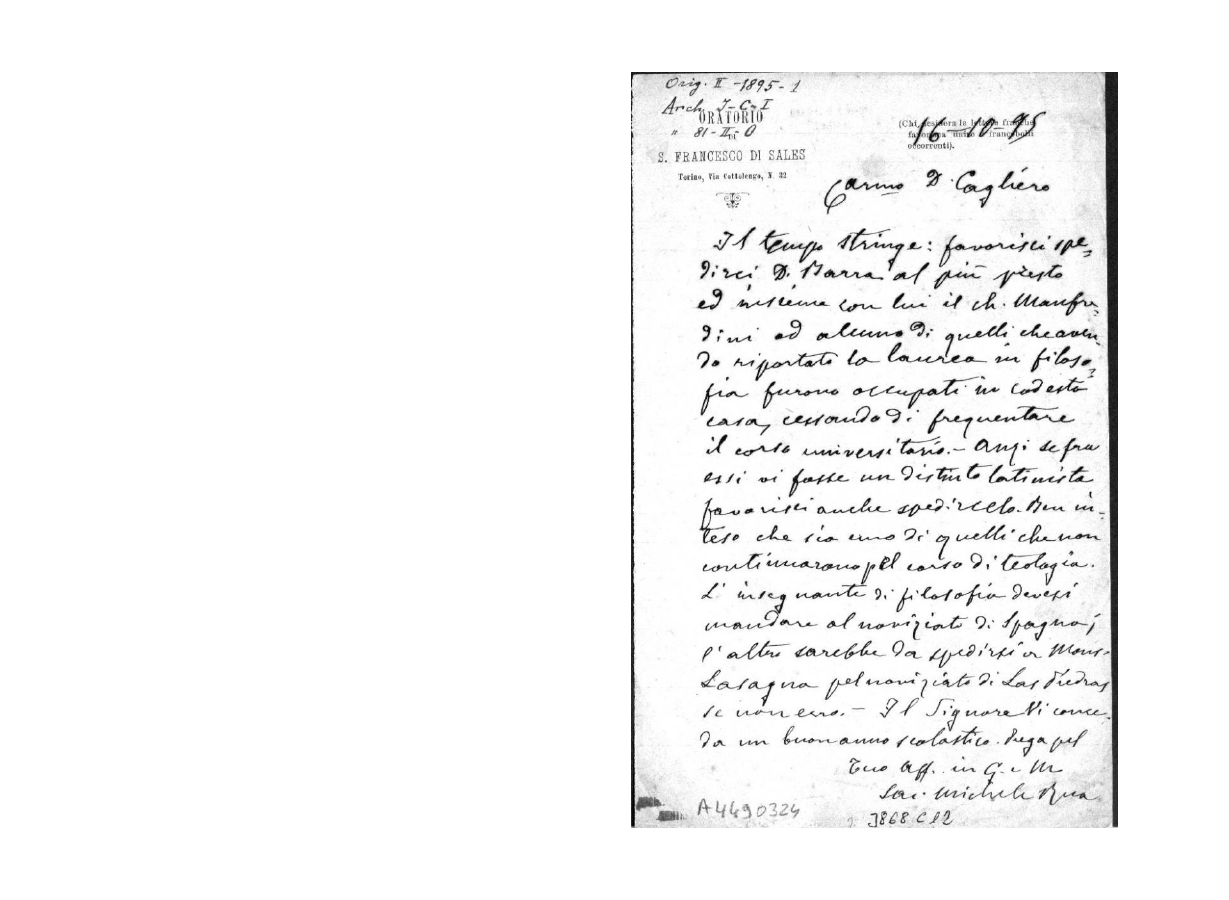 Orig. II - 1895 - 1
Arch. I-C-I
ORATORIO
" 81-II-O
DI
S. FRANCESCO DI SALES
Torino, Via Cottolengo, N. 32
(Chi desidera le lettere franche
favorisca unire i francobolli
occorrenti).
16-10-95
Carmo D. Cagliero
Il tempo stringe: favorisci spe-
dirci D. Barra al più presto
ed insieme con lui il ch. Manfre-
dini od alcuno di quelli che aven-
do riportato la laurea in filoso-
fia furono occupati in codesta
casa, cessando di frequentare
il corso universitario. - Anzi se fra
essi vi fosse un distinto latinista
favorisci anche spedircelo. Ben in-
teso che sia uno di quelli che non
continuarono pel corso di teologia.
L'insegnante di filosofia devesi
mandare al noviziato di Spagna;
l'altro sarebbe da spedirsi a Mons.
Lasagna pel noviziato di Las Piedras
se non erro. - Il Signore Vi conce-
da un buon anno scolastico. Prega pel
Tuo aff. in G. e M
Sac. Michele Rua
A4490324
3868 C12